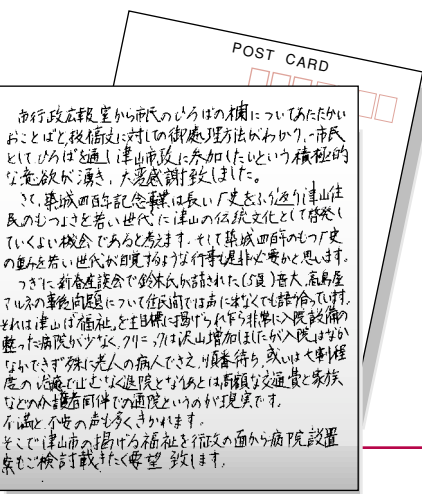 POST CARD
市行政広報室から市民のひろばの欄についてあたたかい
おことばと、投稿文に対しての御処理方法がわかり、一市民
としてひろばを通し津山市政に参加したいという積極的
な意欲が湧き、大変感謝致しました。
さて、築城四百年記念事業は長い「史をふり返り津山住
民のもつよさを若い世代に津山の伝統文化として啓発し
ていくよい機会であると考えます。そして築城四百年のもつ「史
の重みを若い世代が自覚するような行事も是非必要かと思います。
つぎに新春座談会で鈴木氏が話された(5頁)音大、高島屋
アルネの事後問題について住民間では声に出なくても語合っています。
それは津山は福祉を主目標に掲げられ乍ら非常に入院設備の
整った病院が少なく、クリニックは沢山増加しましたが入院はなか
なかできず殊に老人の病人でさえ順番待ち、或いは七割程
度の治療で止むなく退院となりあとは高額な交通費と家族
などの介護者同伴での通院というのが現実です。
不満と不安の声も多くきかれます。
そこで津山市の掲げる福祉を行政の面から病院設置
案もご検討戴きたく要望致します。